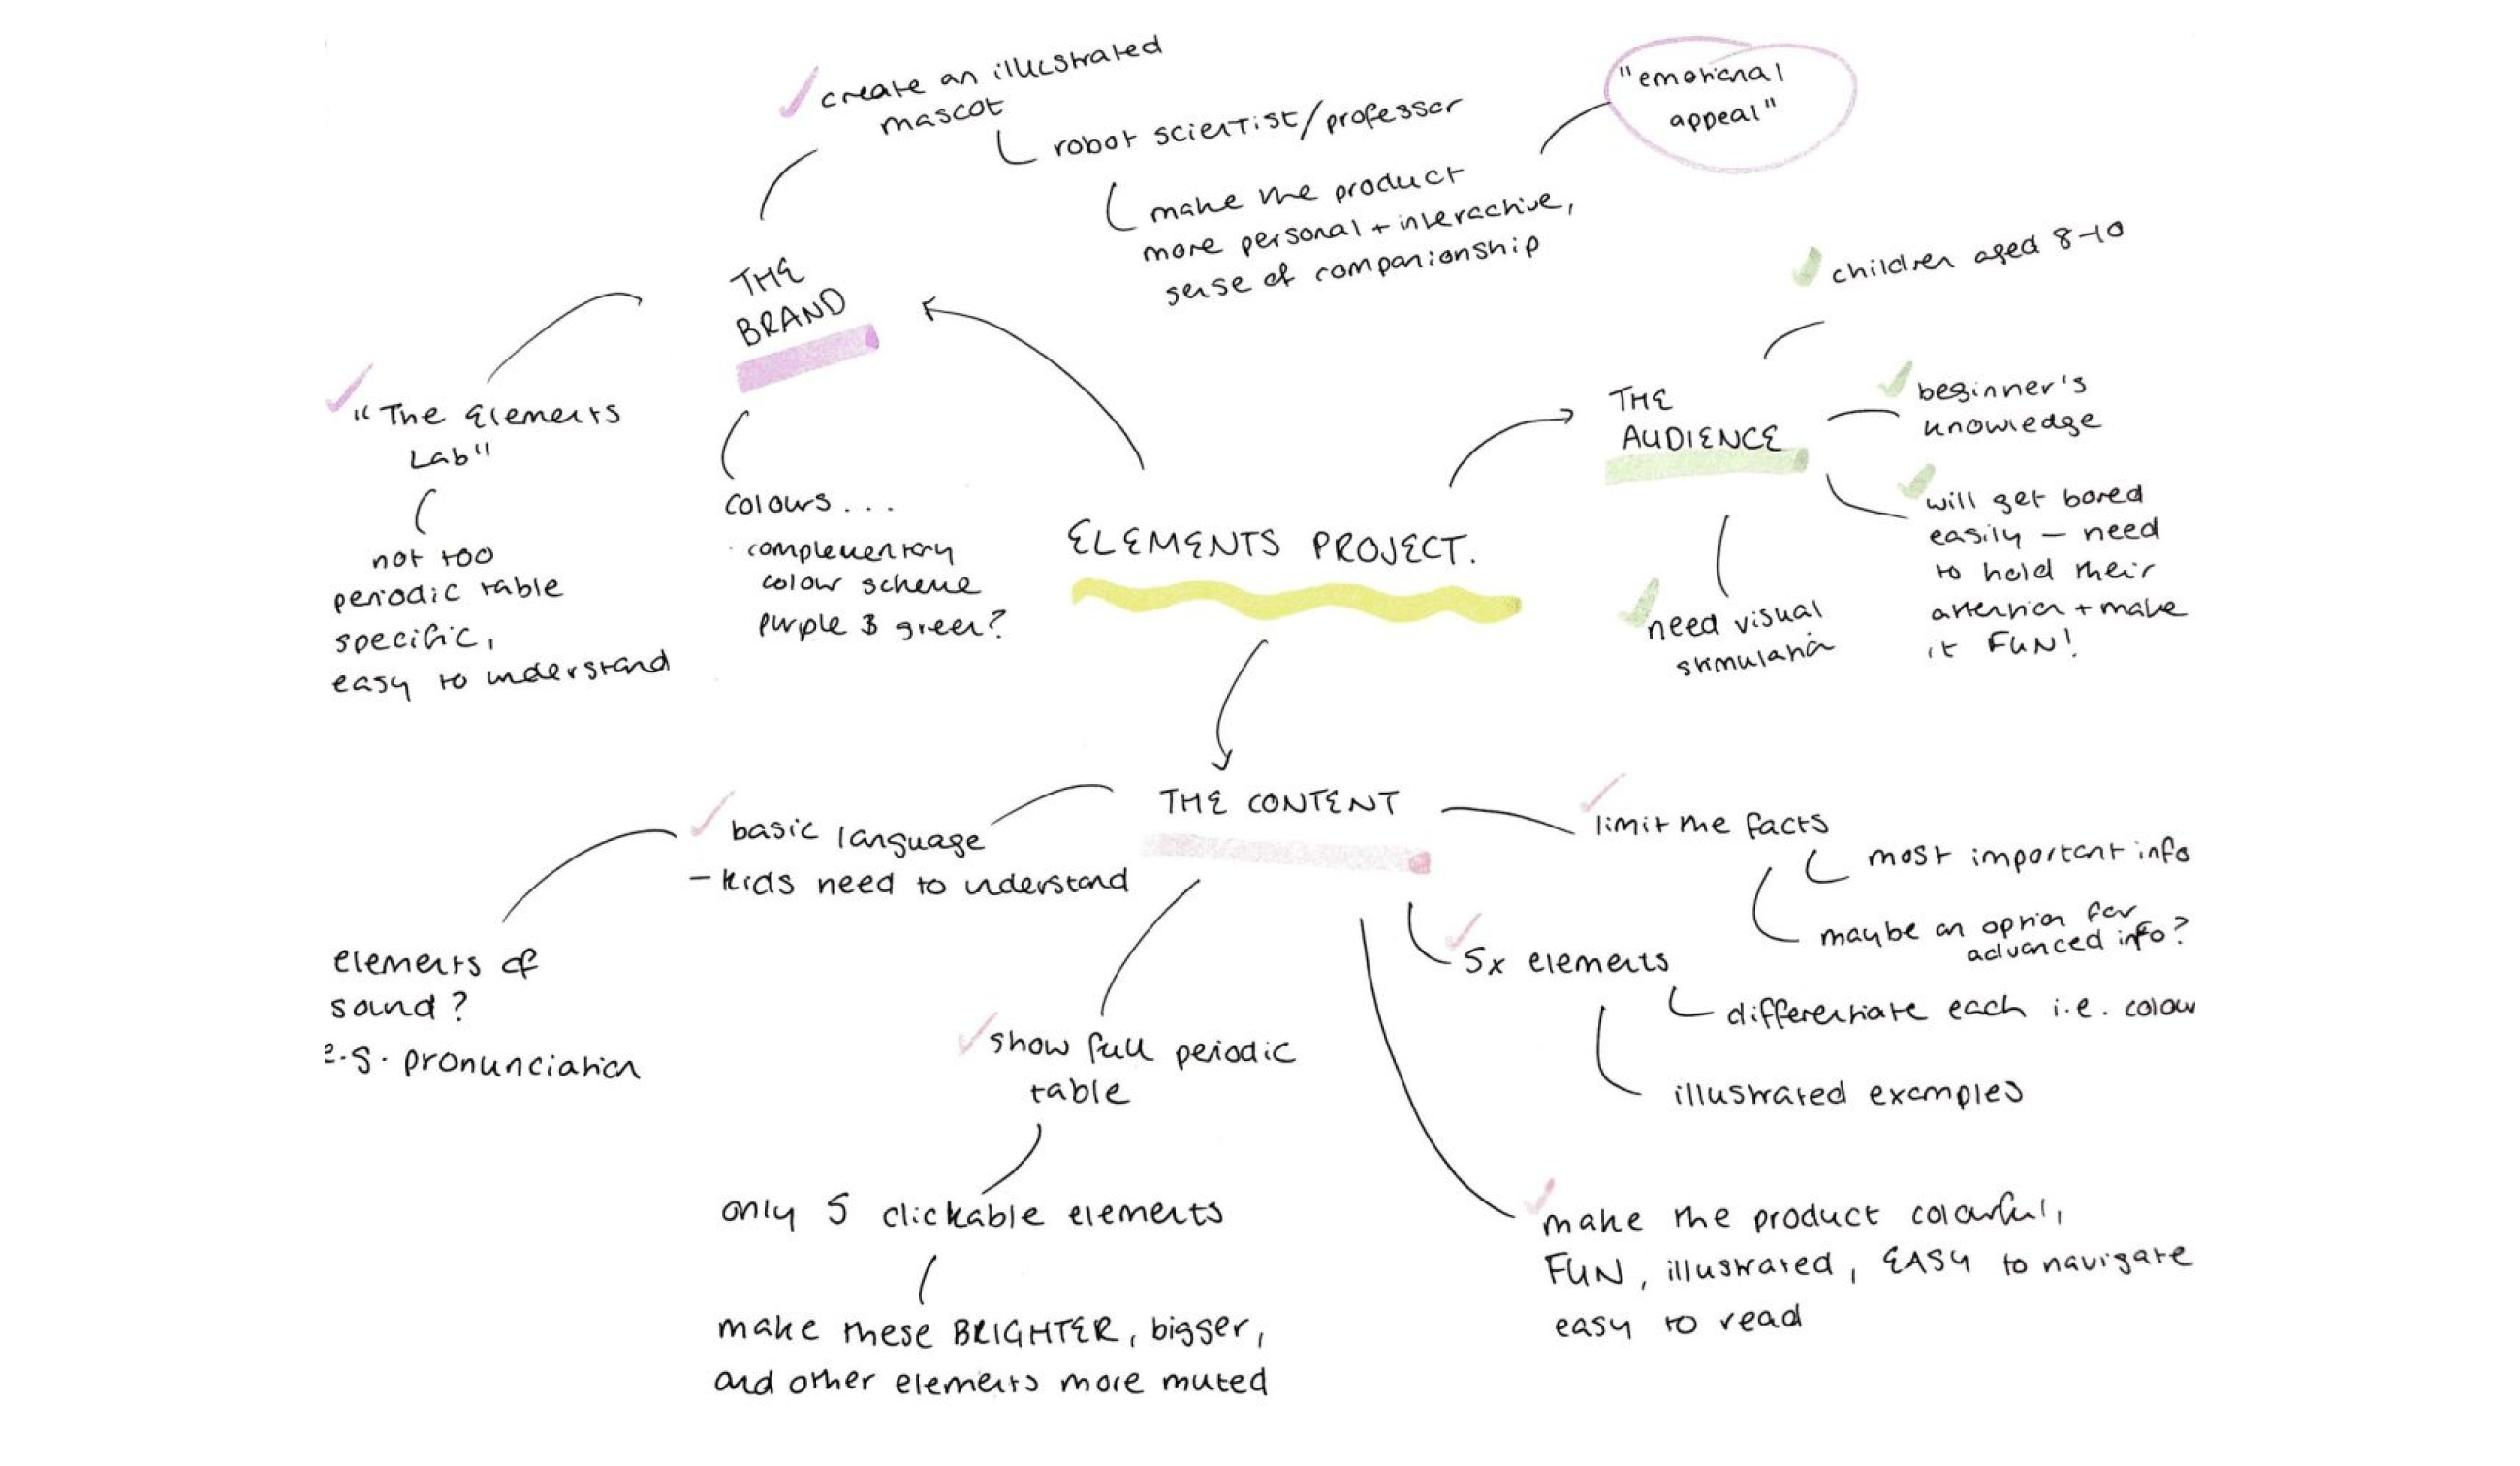 create an illustrated
mascot
robot scientist/professor
make the product
more personal + interactive,
sense of companionship
"emotional
appeal"
THE
BRAND
"The Elements
Lab"
not too
periodic table
specific,
easy to understand
colours...
complementary
colour scheme
purple & green?
ELEMENTS PROJECT.
THE
AUDIENCE
children aged 8-10
beginner's
knowledge
will get bored
easily – need
to hold their
attention + make
it FUN!
need visual
stimulation
THE CONTENT
basic language
– kids need to understand
elements of
sound?
e.g. pronunciation
show full periodic
table
only 5 clickable elements
make these BRIGHTER, bigger,
and other elements more muted
limit the facts
most important info
maybe an option for
advanced info?
5x elements
differentiate each i.e. colour
illustrated examples
make the product colourful,
FUN, illustrated, EASY to navigate
easy to read